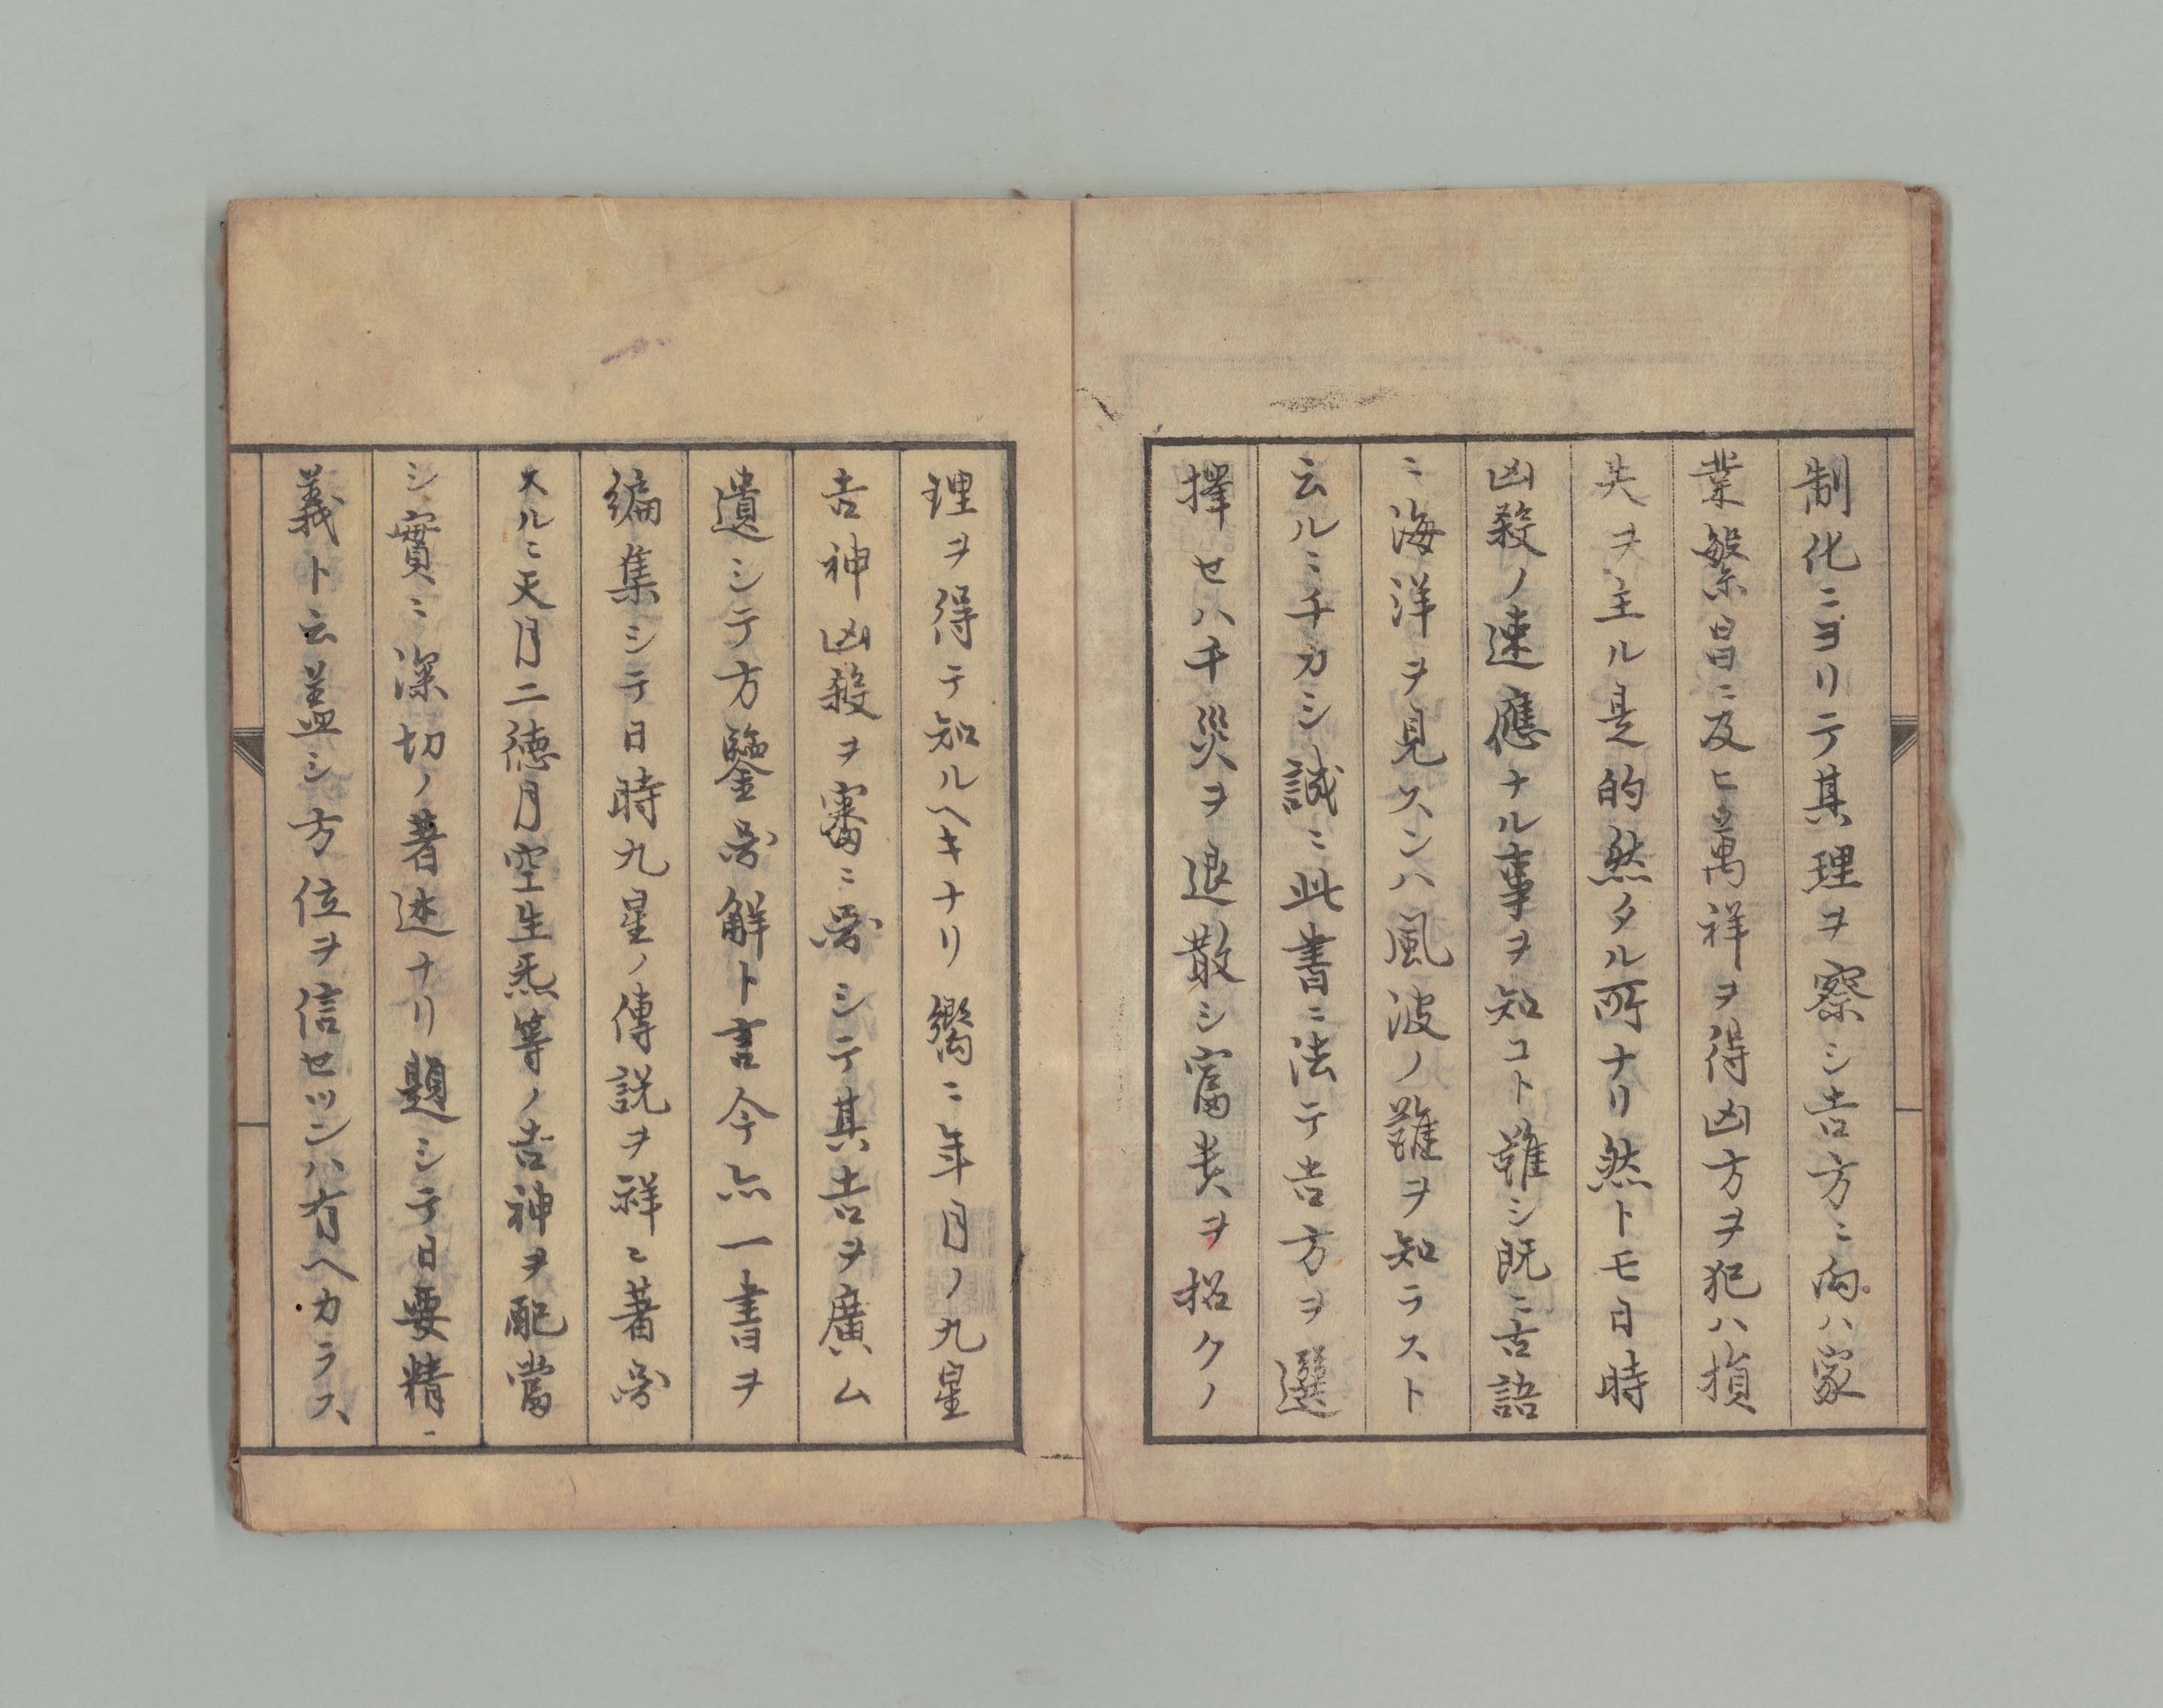 制化ニヨリテ其理ヲ察シ吉方ニ向ハ家
業繁昌ニ及ヒ萬祥ヲ得凶方ヲ犯ハ損
失ヲ主ル是的然タル所ナリ然トモ日時
凶殺ノ速應ナル事ヲ知コト難シ既ニ古語
ニ海洋ヲ見スンハ風波ノ難ヲ知ラスト
云ルニチカシ誠ニ此書ニ法テ吉方ヲ選
擇セハ千災ヲ退散シ富貴ヲ招クノ
理ヲ得テ知ルヘキナリ嚮ニ年月ノ九星
吉神凶殺ヲ審ニ畧シテ其吉ヲ廣ム
遺シテ方鑒畧解ト言今亦一書ヲ
編集シテ日時九星ノ傳説ヲ祥ニ著畧
スルニ天月二徳月空生炁等ノ吉神ヲ配當
シ實ニ深切ノ著述ナリ題シテ日要精
義ト云蓋シ方位ヲ信セツンハ有ヘカラス